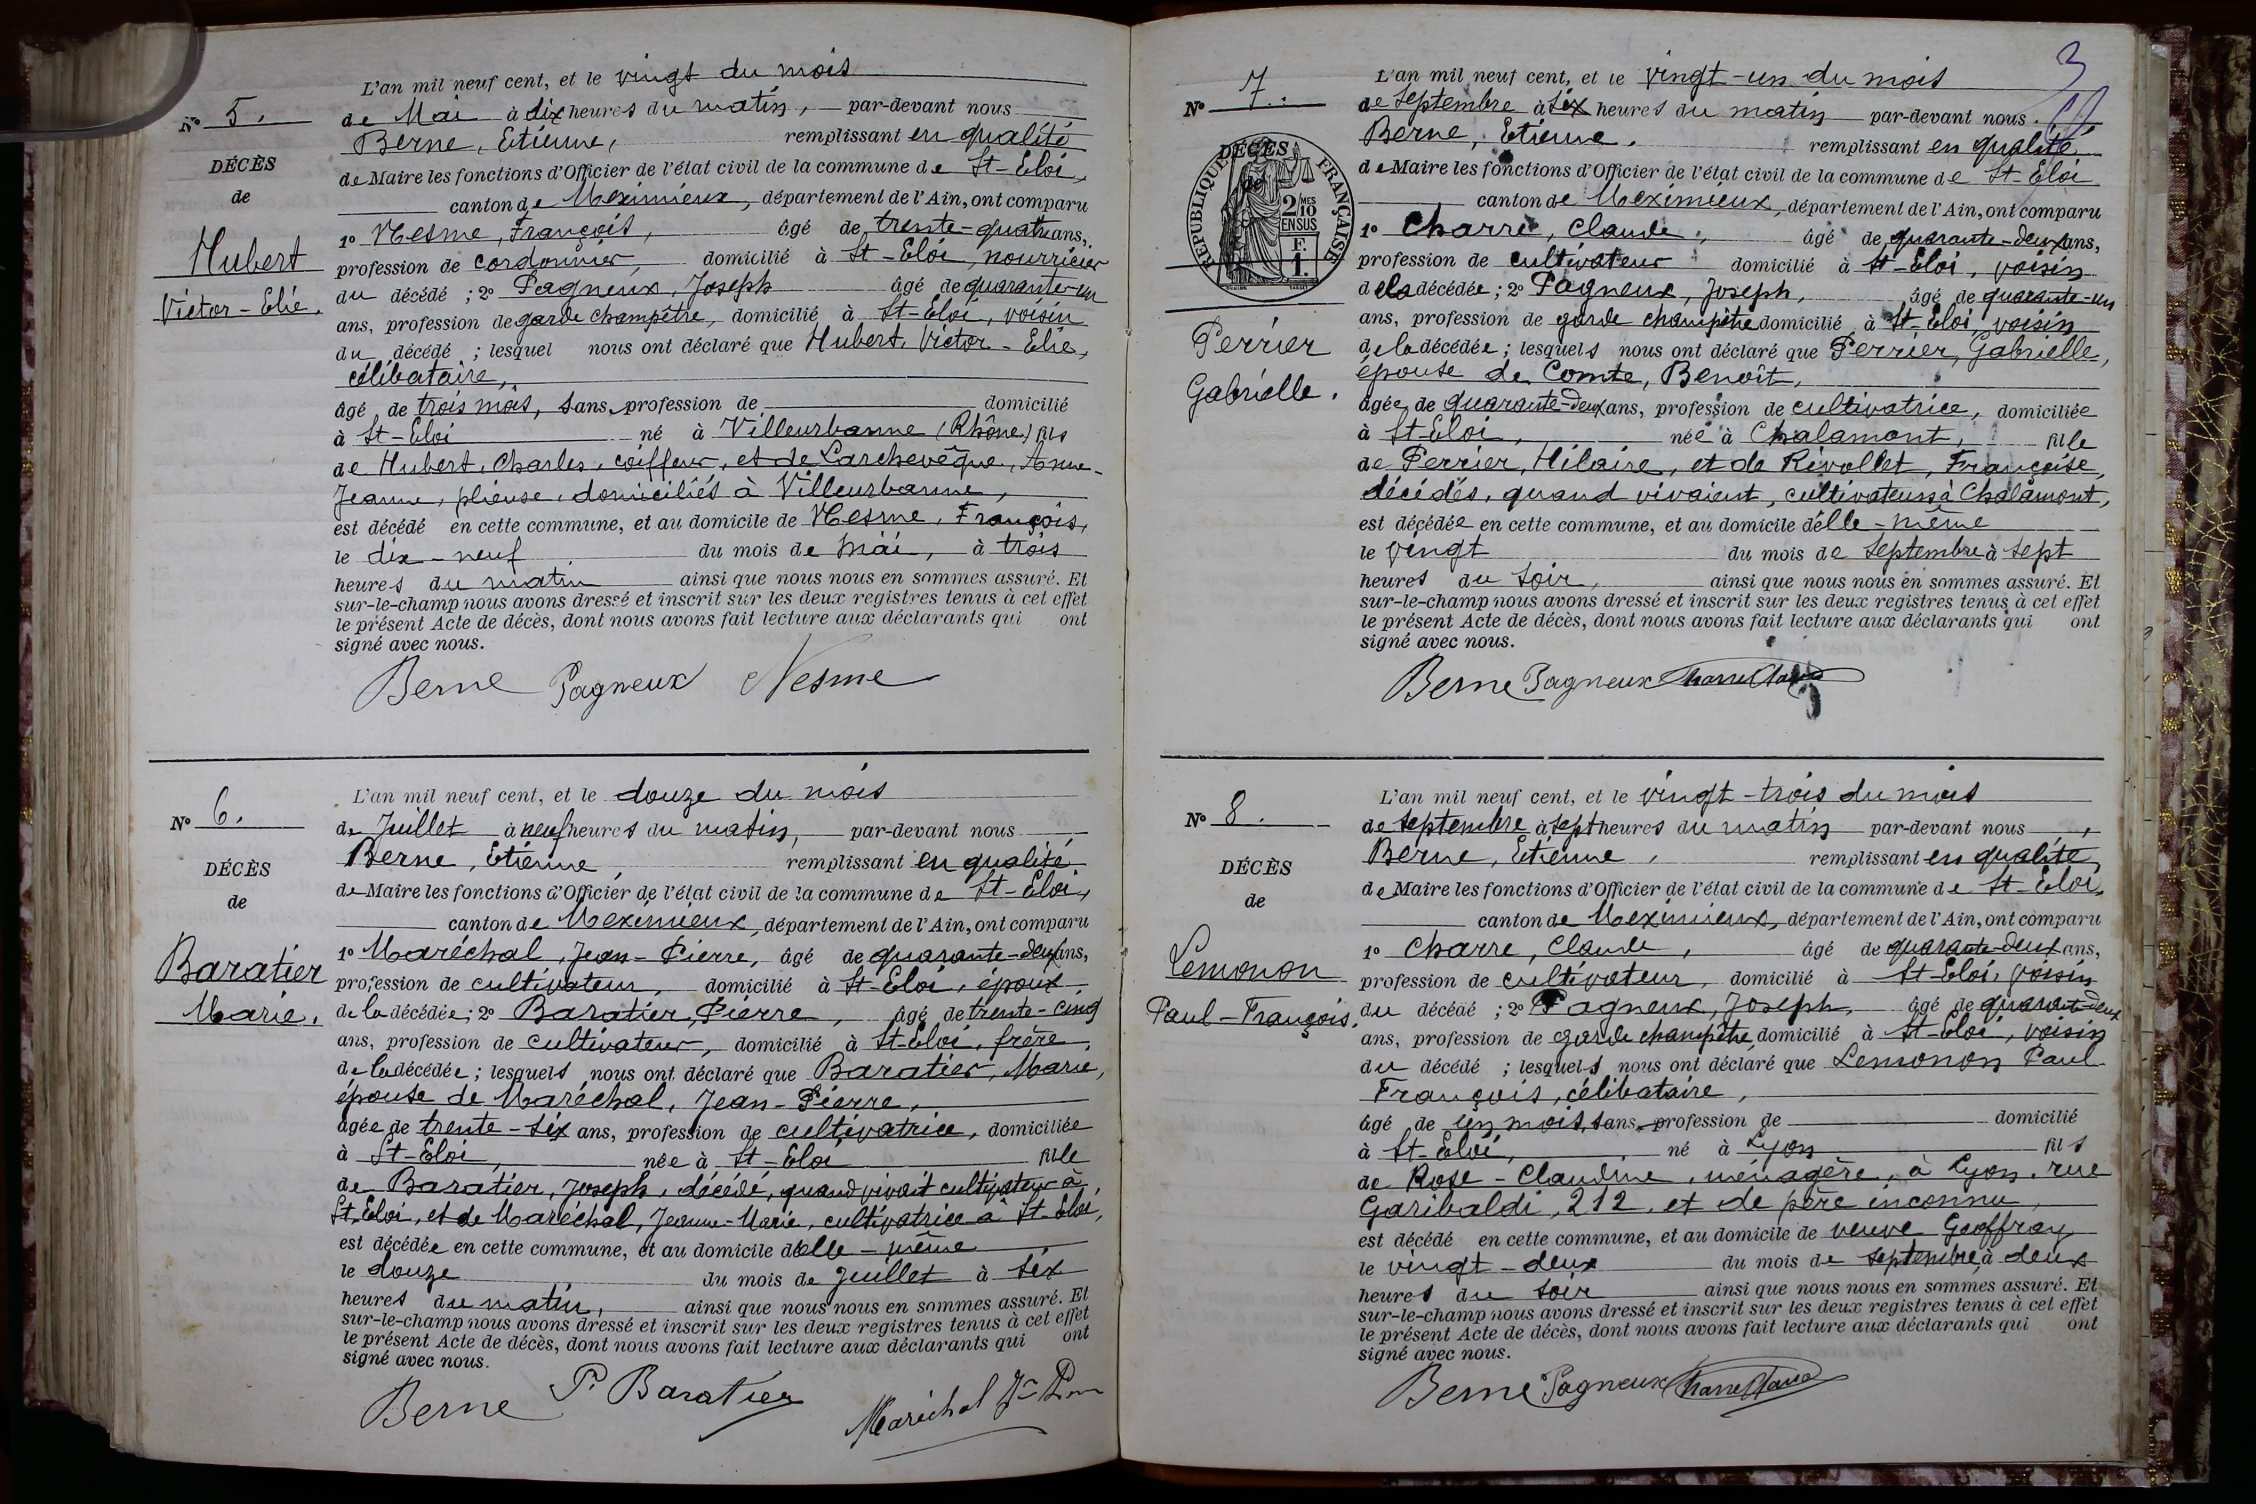 L'an mil neuf cent, et le vingt du mois
N° 5.
de Mai à dix heures du matin, par-devant nous
Berne, Etienne, remplissant en qualité
DÉCÈS
de Maire les fonctions d'Officier de l'état civil de la commune de St-Eloi,
de
canton de Meximieux, département de l'Ain, ont comparu
1° Nesme, François, âgé de trente-quatre ans,
Hubert
profession de cordonnier, domicilié à St-Eloi, nourricier
Victor-Elie.
du décédé ; 2° Pagneux, Joseph âgé de quarante-un
ans, profession de garde champêtre, domicilié à St-Eloi, voisin
du décédé ; lesquel nous ont déclaré que Hubert, Victor-Elie,
célibataire,
âgé de trois mois, sans profession de domicilié
à St-Eloi né à Villeurbanne (Rhône) fils
de Hubert, Charles, coiffeur, et de Larchevêque, Anne-
Jeanne, plieuse, domiciliés à Villeurbanne,
est décédé en cette commune, et au domicile de Nesme, François,
le dix-neuf du mois de Mai, à trois
heures du matin ainsi que nous nous en sommes assuré. Et
sur-le-champ nous avons dressé et inscrit sur les deux registres tenus à cet effet
le présent Acte de décès, dont nous avons fait lecture aux déclarants qui ont
signé avec nous.
Berne Pagneux Nesme
L'an mil neuf cent, et le douze du mois
N° 6.
de Juillet à neuf heures du matin, par-devant nous
Berne, Etienne, remplissant en qualité
DÉCÈS
de Maire les fonctions d'Officier de l'état civil de la commune de St-Eloi,
de
canton de Meximieux, département de l'Ain, ont comparu
1° Maréchal, Jean-Pierre, âgé de quarante-deux ans,
Baratier
profession de cultivateur, domicilié à St-Eloi, époux
Marie.
de la décédée ; 2° Baratier, Pierre, âgé de trente-cinq
ans, profession de cultivateur, domicilié à St-Eloi, frère
de la décédée ; lesquels nous ont déclaré que Baratier, Marie,
épouse de Maréchal, Jean-Pierre,
âgée de trente-six ans, profession de cultivatrice, domiciliée
à St-Eloi, née à St-Eloi fille
de Baratier, Joseph, décédé, quand vivait cultivateur à
St-Eloi, et de Maréchal, Jeanne-Marie, cultivatrice à St-Eloi,
est décédée en cette commune, et au domicile d'elle-même
le douze du mois de Juillet à six
heures du matin, ainsi que nous nous en sommes assuré. Et
sur-le-champ nous avons dressé et inscrit sur les deux registres tenus à cet effet
le présent Acte de décès, dont nous avons fait lecture aux déclarants qui ont
signé avec nous.
Berne P. Baratier Maréchal
3
L'an mil neuf cent, et le vingt-un du mois
N° 7.
de Septembre à six heures du matin par-devant nous
Berne, Etienne, remplissant en qualité
DÉCÈS
de
RÉPUBLIQUE FRANÇAISE
2/10 MES EN SUS
F. 1.
de Maire les fonctions d'Officier de l'état civil de la commune de St-Eloi
canton de Meximieux, département de l'Ain, ont comparu
1° Charre, Claude, âgé de quarante-deux ans,
profession de cultivateur domicilié à St-Eloi, voisin
de la décédée ; 2° Pagneux, Joseph, âgé de quarante-un
ans, profession de garde champêtre domicilié à St-Eloi, voisin
Perrier
de la décédée ; lesquels nous ont déclaré que Perrier, Gabrielle,
Gabrielle.
épouse de Comte, Benoît,
âgée de quarante-deux ans, profession de cultivatrice, domiciliée
à St-Eloi, née à Chalamont, fille
de Perrier, Hilaire, et de Rivollet, Françoise,
décédés, quand vivaient, cultivateurs à Chalamont,
est décédée en cette commune, et au domicile d'elle-même
le vingt du mois de Septembre à sept
heures du soir, ainsi que nous nous en sommes assuré. Et
sur-le-champ nous avons dressé et inscrit sur les deux registres tenus à cet effet
le présent Acte de décès, dont nous avons fait lecture aux déclarants qui ont
signé avec nous.
Berne Pagneux Charre Claude
L'an mil neuf cent, et le vingt-trois du mois
N° 8.
de Septembre à sept heures du matin par-devant nous,
Berne, Etienne, remplissant en qualité
DÉCÈS
de Maire les fonctions d'Officier de l'état civil de la commune de St-Eloi,
de
canton de Meximieux, département de l'Ain, ont comparu
1° Charre, Claude, âgé de quarante-deux ans,
Lemonon
profession de cultivateur, domicilié à St-Eloi, voisin
Paul-François.
du décédé ; 2° Pagneux, Joseph, âgé de quarante-deux
ans, profession de garde champêtre domicilié à St-Eloi, voisin
du décédé ; lesquels nous ont déclaré que Lemonon Paul
François, célibataire,
âgé de un mois, sans profession de domicilié
à St-Eloi, né à Lyon fils
de Rose-Claudine, ménagère, à Lyon, rue
Garibaldi, 212, et de père inconnu,
est décédé en cette commune, et au domicile de veuve Geoffray
le vingt-deux du mois de Septembre, à deux
heures du soir ainsi que nous nous en sommes assuré. Et
sur-le-champ nous avons dressé et inscrit sur les deux registres tenus à cet effet
le présent Acte de décès, dont nous avons fait lecture aux déclarants qui ont
signé avec nous.
Berne Pagneux Charre Claude